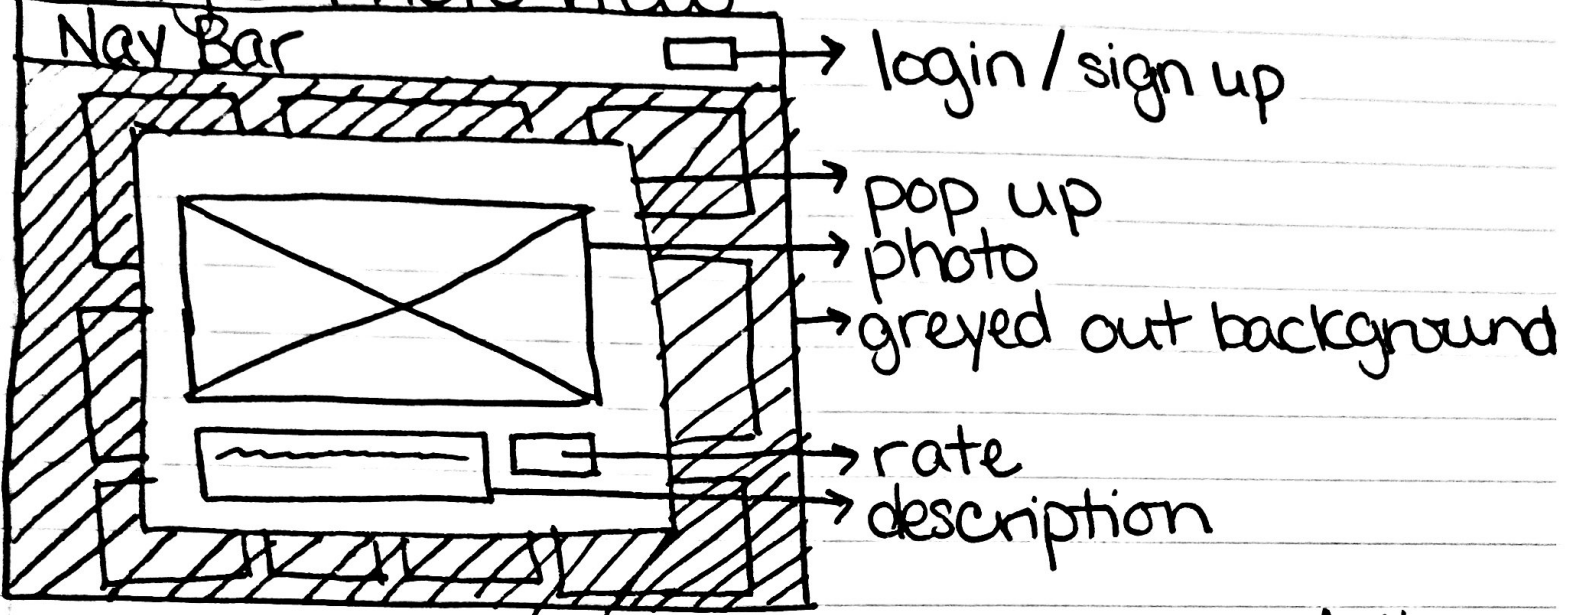 Nav Bar
login/sign up
pop up
photo
greyed out background
rate
description